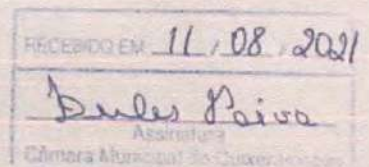 RECEBIDO EM 11 / 08 / 2021
Dules Paiva
Assinatura
Câmara Municipal de